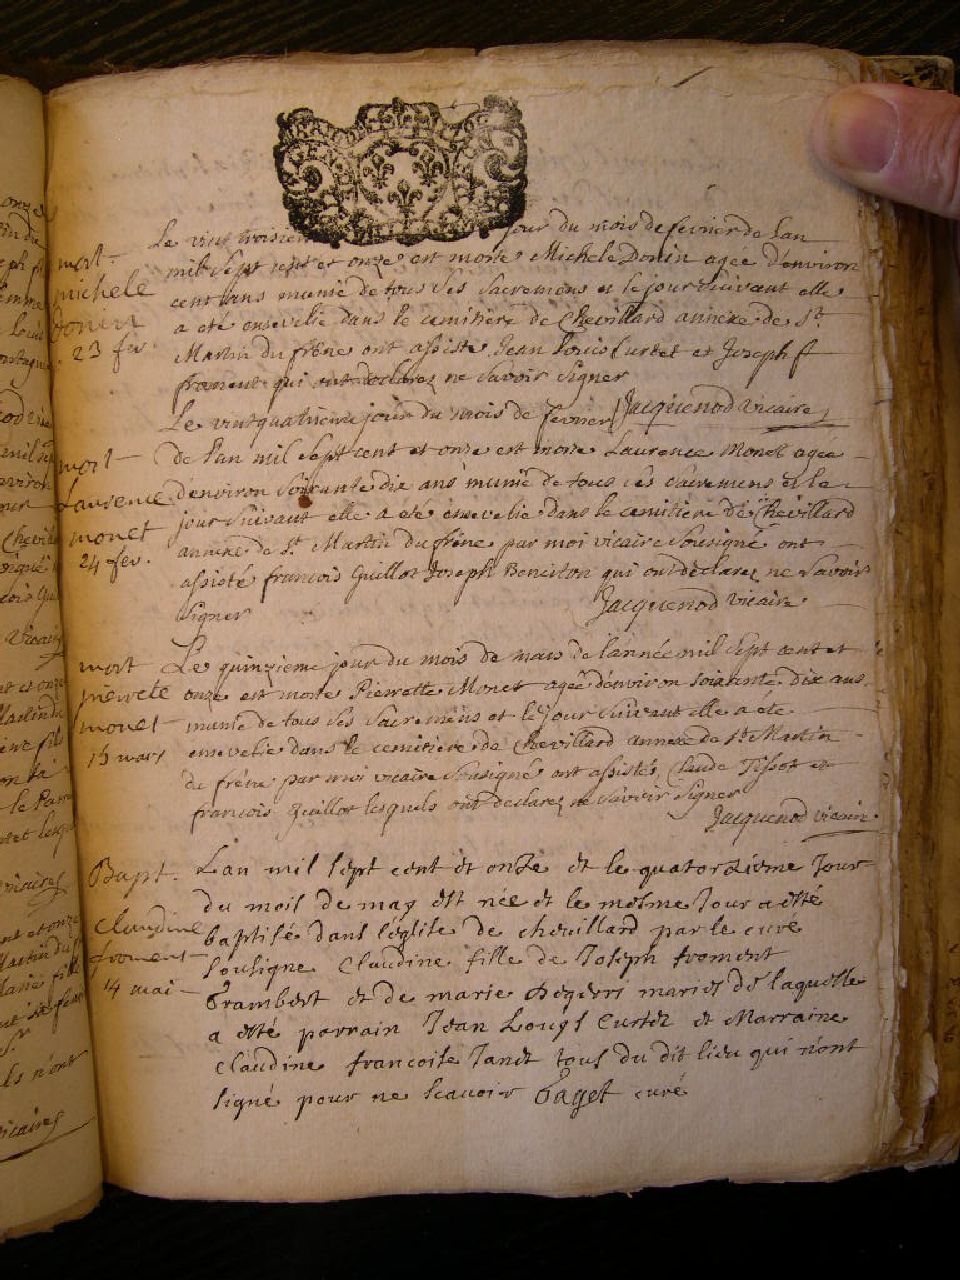 Le vint troisieme jour du mois de fevrier de lan
mort
mil sept cent et onze est morte Michele Donin agée denviron
michele
cent ans munie de tous ses sacremens et le jour suivant elle
donin
a eté ensevelie dans le cemitiere de Chevillard annexe de St
23 fev.
Martin du frêne ont assisté Jean Louis Curtet et Joseph
froment qui ont declarez ne savoir signer
Jacquenod vicaire
Le vintquatrieme jour du mois de fevrier
mort
de lan mil sept cent et onze est morte Laurence Monet agée
Laurence
denviron soixante dix ans munie de tous ses sacremens et le
monet
jour suivant elle a eté ensevelie dans le cemitiere de Chevillard
24 fev.
annexe de St Martin du frêne par moi vicaire sousigné ont
assisté francois Guillot Joseph qui ont declarez ne savoir
signer Jacquenod vicaire
mort
Le quinzieme jour du mois de mars de l'année mil sept cent et
pierrete
onze est morte Pierrette Monet agée denviron soixante dix ans
monet
munie de tous ses sacremens et le jour suivant elle a eté
15 mars
ensevelie dans le cemitiere de Chevillard annexe de St Martin
du frêne par moi vicaire sousigné ont assistés Claude Tissot et
francois Guillot lesquels ont declarez ne savoir signer
Jacquenod vicaire
Bapt.
Lan mil sept cent et onze et le quatorzieme jour
du mois de may est née et le mesme jour a esté
Claudine
baptisé dans l'église de chevillard par le curé
froment
sousigne Claudine fille de Joseph froment
14 mai
et de marie mariés de laquelle
a esté parrain Jean Louys Curtet et Marraine
Claudine francoise Janet tous du dit lieu qui n'ont
signé pour ne scavoir curé